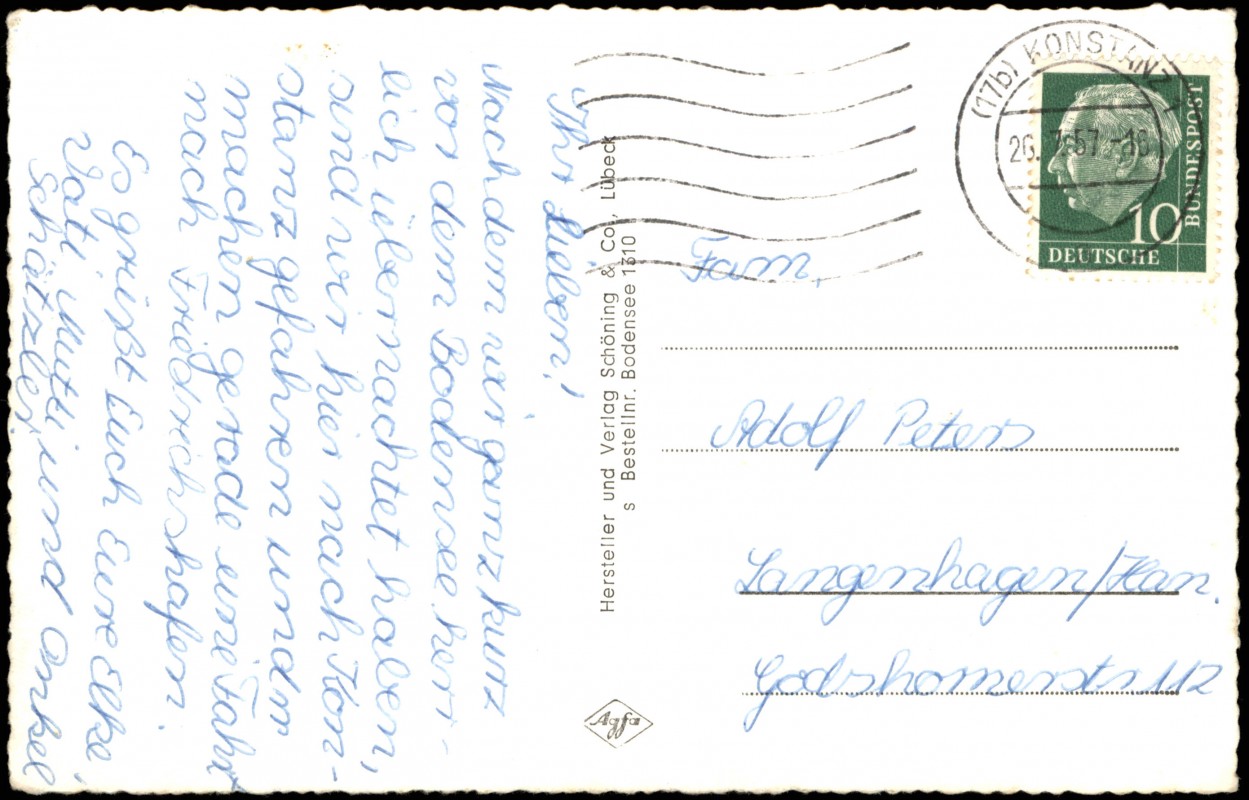 Ihr Lieben!
Nachdem wir ganz kurz
vor dem Bodensee herr-
lich übernachtet haben,
sind wir hier nach Kon-
stanz gefahren und
machen gerade eine Fahrt
nach Friedrichshafen.
Es grüßt Euch Eure Elke
Vati, Mutti und Onkel
Schätzle,
Hersteller und Verlag Schöning & Co., Lübeck
s Bestellnr. Bodensee 1310
Agfa
(17b) KONSTANZ
26. 7.57.-16
10
DEUTSCHE
BUNDESPOST
Fam.
Adolf Peters
Langenhagen/Han.
Godshornerstr 112